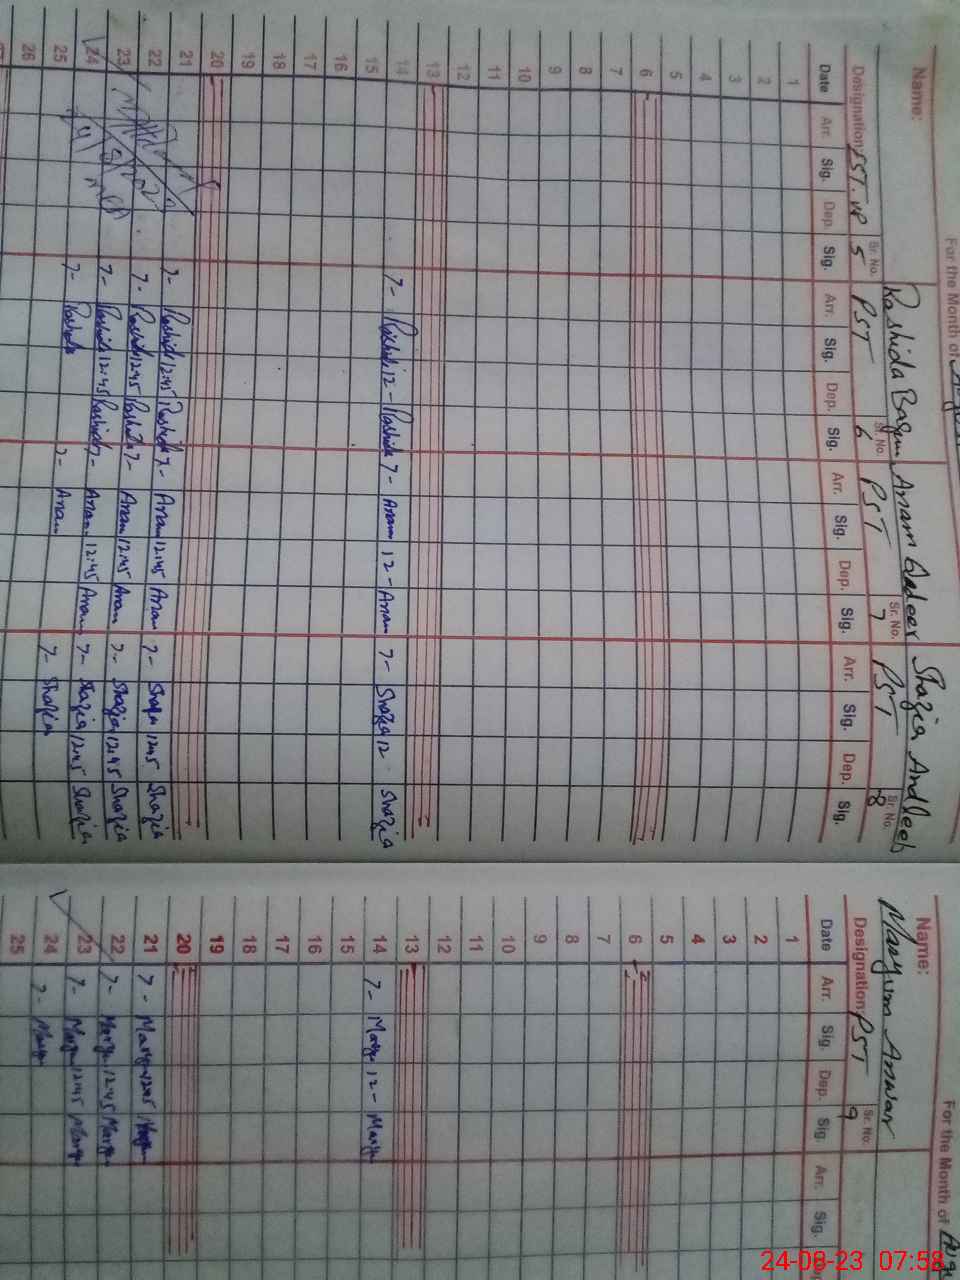 For the Month of
Name: Rashida Bagum Anam Qadeer Shazia Andleeb
Sr. No. 5 Sr. No. 6 Sr. No. 7 Sr. No. 8
Designation PST PST PST
Date Arr. Sig. Dep. Sig. Arr. Sig. Dep. Sig. Arr. Sig. Dep. Sig. Arr. Sig. Dep. Sig.
1
2
3
4
5
6
7
8
9
10
11
12
13
14 7- Rashida 12- Rashida 7- Anam 12- Anam 7- Shazia 12 Shazia
15
16
17
18
19
20
21 7- Rashida 12:45 Rashida 7- Anam 12:45 Anam 7- Shazia 12:45 Shazia
22 7- Rashida 12:45 Rashida 7- Anam 12:45 Anam 7- Shazia 12:45 Shazia
23 7- Rashida 12:45 Rashida 7- Anam 12:45 Anam 7- Shazia 12:45 Shazia
24 7- Rashida 7- Anam 7- Shazia
25
26
For the Month of
Name: Maryum Anwar
Sr. No. 9
Designation PST
Date Arr. Sig. Dep. Sig. Arr. Sig.
1
2
3
4
5
6
7
8
9
10
11
12
13
14 7- Marym 12- Marym
15
16
17
18
19
20
21 7- Marym 12:45 Marym
22 7- Marym 12:45 Marym
23 7- Marym 12:45 Marym
24 7- Marym
25
24-08-23 07:58